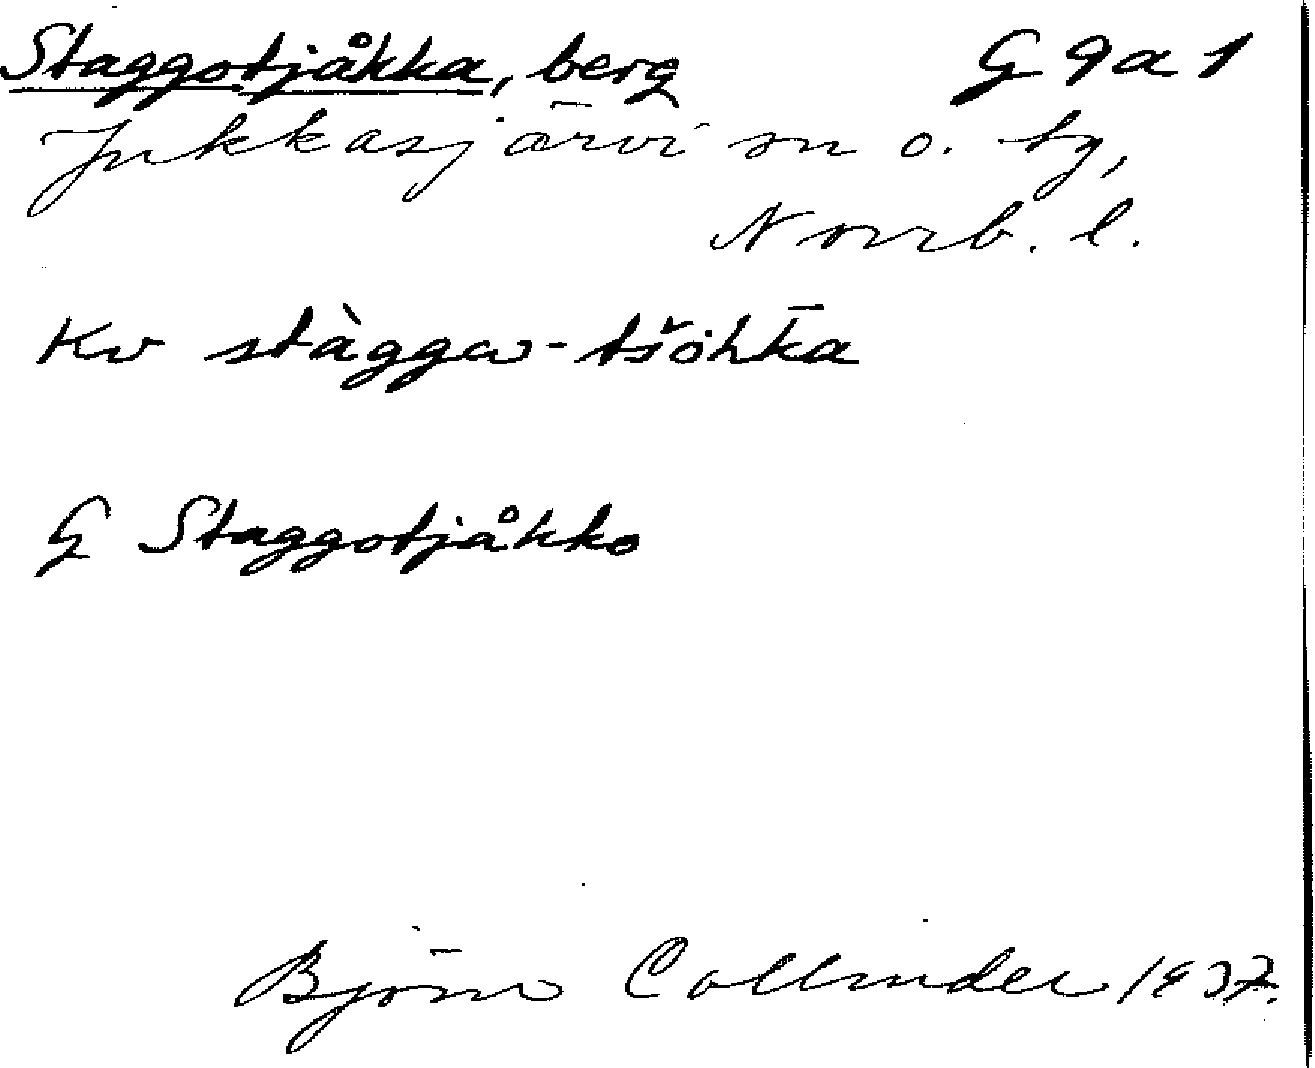 Staggotjåkka, berg G 9 a 1
Jukkasjärvi sn o. tg,
Norrb. l.
Kv stàggω-tšöh̄ka
G Staggotjåkko
Björn Collinder 1937.